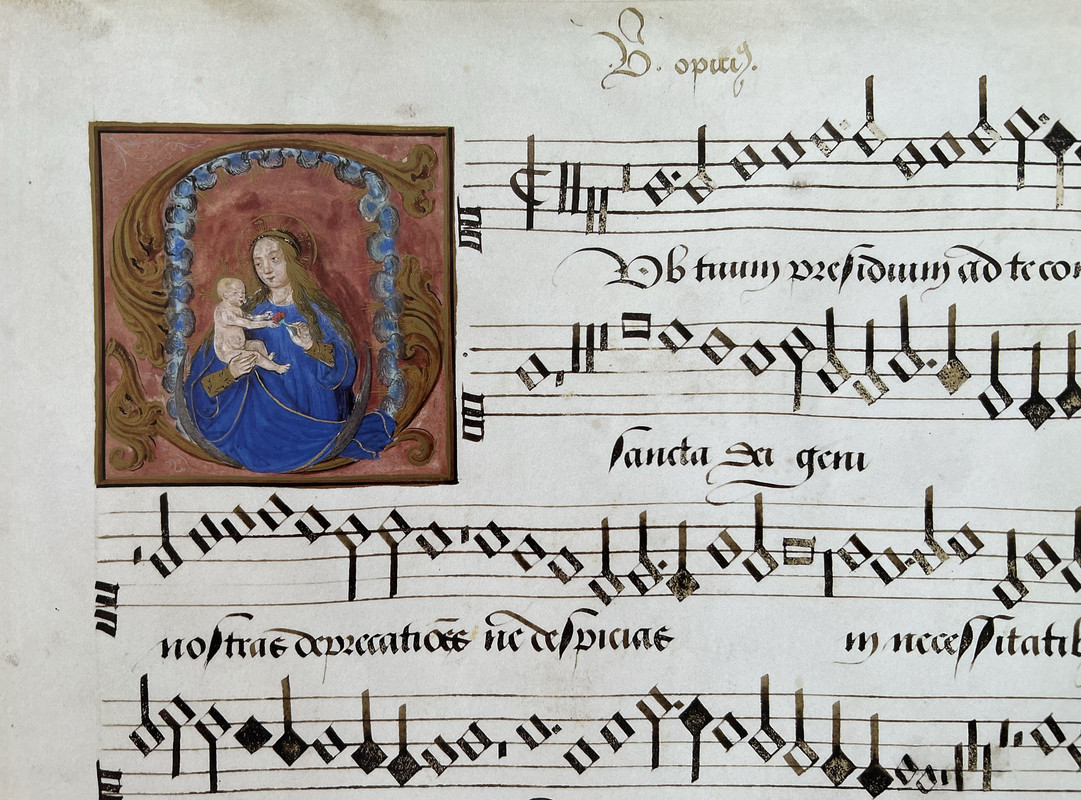 B. opicijs.
Sub tuum presidium ad te con
sancta dei geni
nostras deprecatiões ne despicias in necessitatib